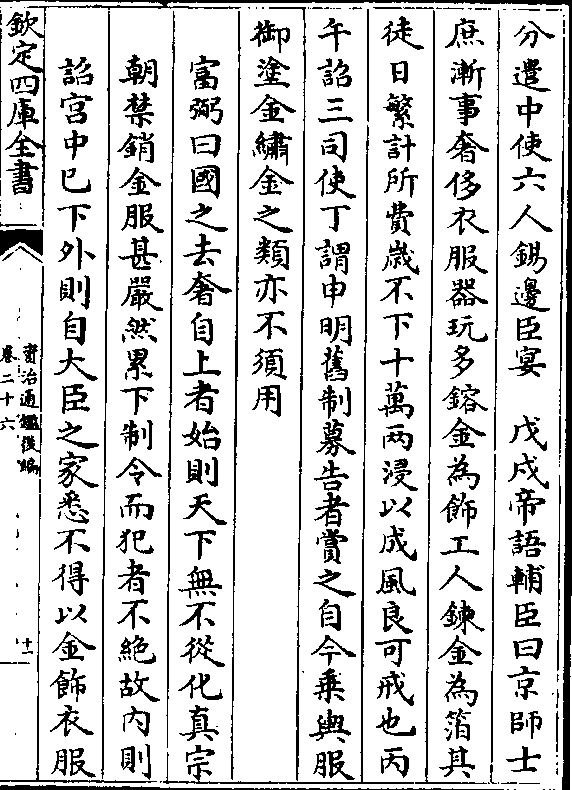 分遣中使六人錫邊臣宴　戊戌帝語輔臣曰京師士
庶漸事奢侈衣服器玩多鎔金為飾工人鍊金為箔其
徒日繁計所費歲不下十萬两浸以成風良可戒也丙
午詔三司使丁謂申明舊制募告者賞之自今乗輿服
御塗金繡金之類亦不須用
富弼曰國之去奢自上者始則天下無不從化真宗
朝禁銷金服甚嚴然累下制令而犯者不絶故内則
詔宫中已下外則自大臣之家悉不得以金飾衣服
欽定四庫全書
資治通鑑後編
卷二十六
十一